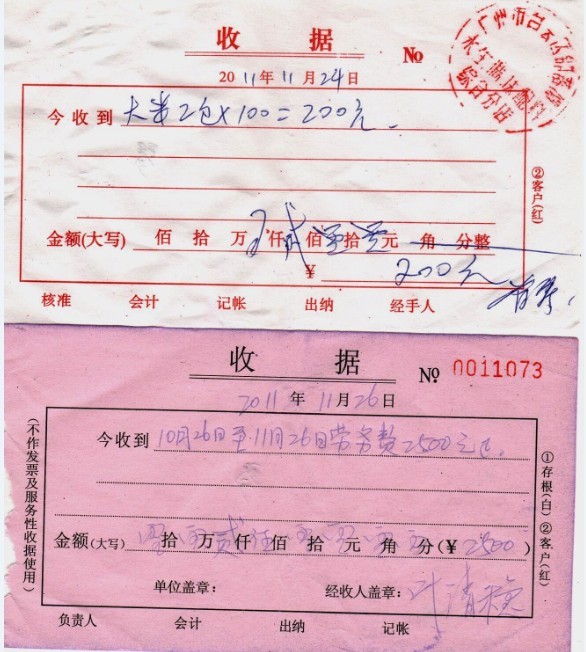 收 据 №
2011年11月24日
今收到 大米2包×100=200元.
金额(大写) 佰 拾 万 仟 贰 佰 零 拾 零 元 角 分整
¥ 200元
核准 会计 记帐 出纳 经手人
②客户(红)
广州市白云
综合分店
收 据 № 0011073
2011年11月26日
今收到 10月26日至11月26日劳务费2500元正.
金额(大写) 拾 万 贰 仟 佰 拾 元 角 分(¥ 2500)
单位盖章: 经收人盖章: 叶清
负责人 会计 出纳 记帐
(不作发票及服务性收据使用)
①存根(白)②客户(红)